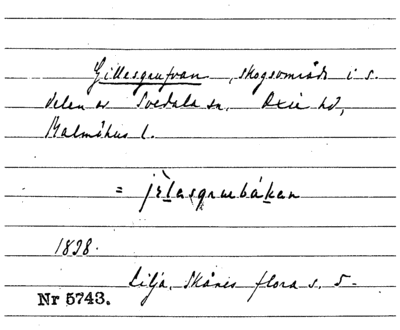 Gillesgrufvan, skogsområde i s.
delen av Svedala sn. Oxie hd,
Malmöhus l.
= jɛlasgruebákan
1838.
Lilja, Skånes flora s. 5-
Nr 5743.